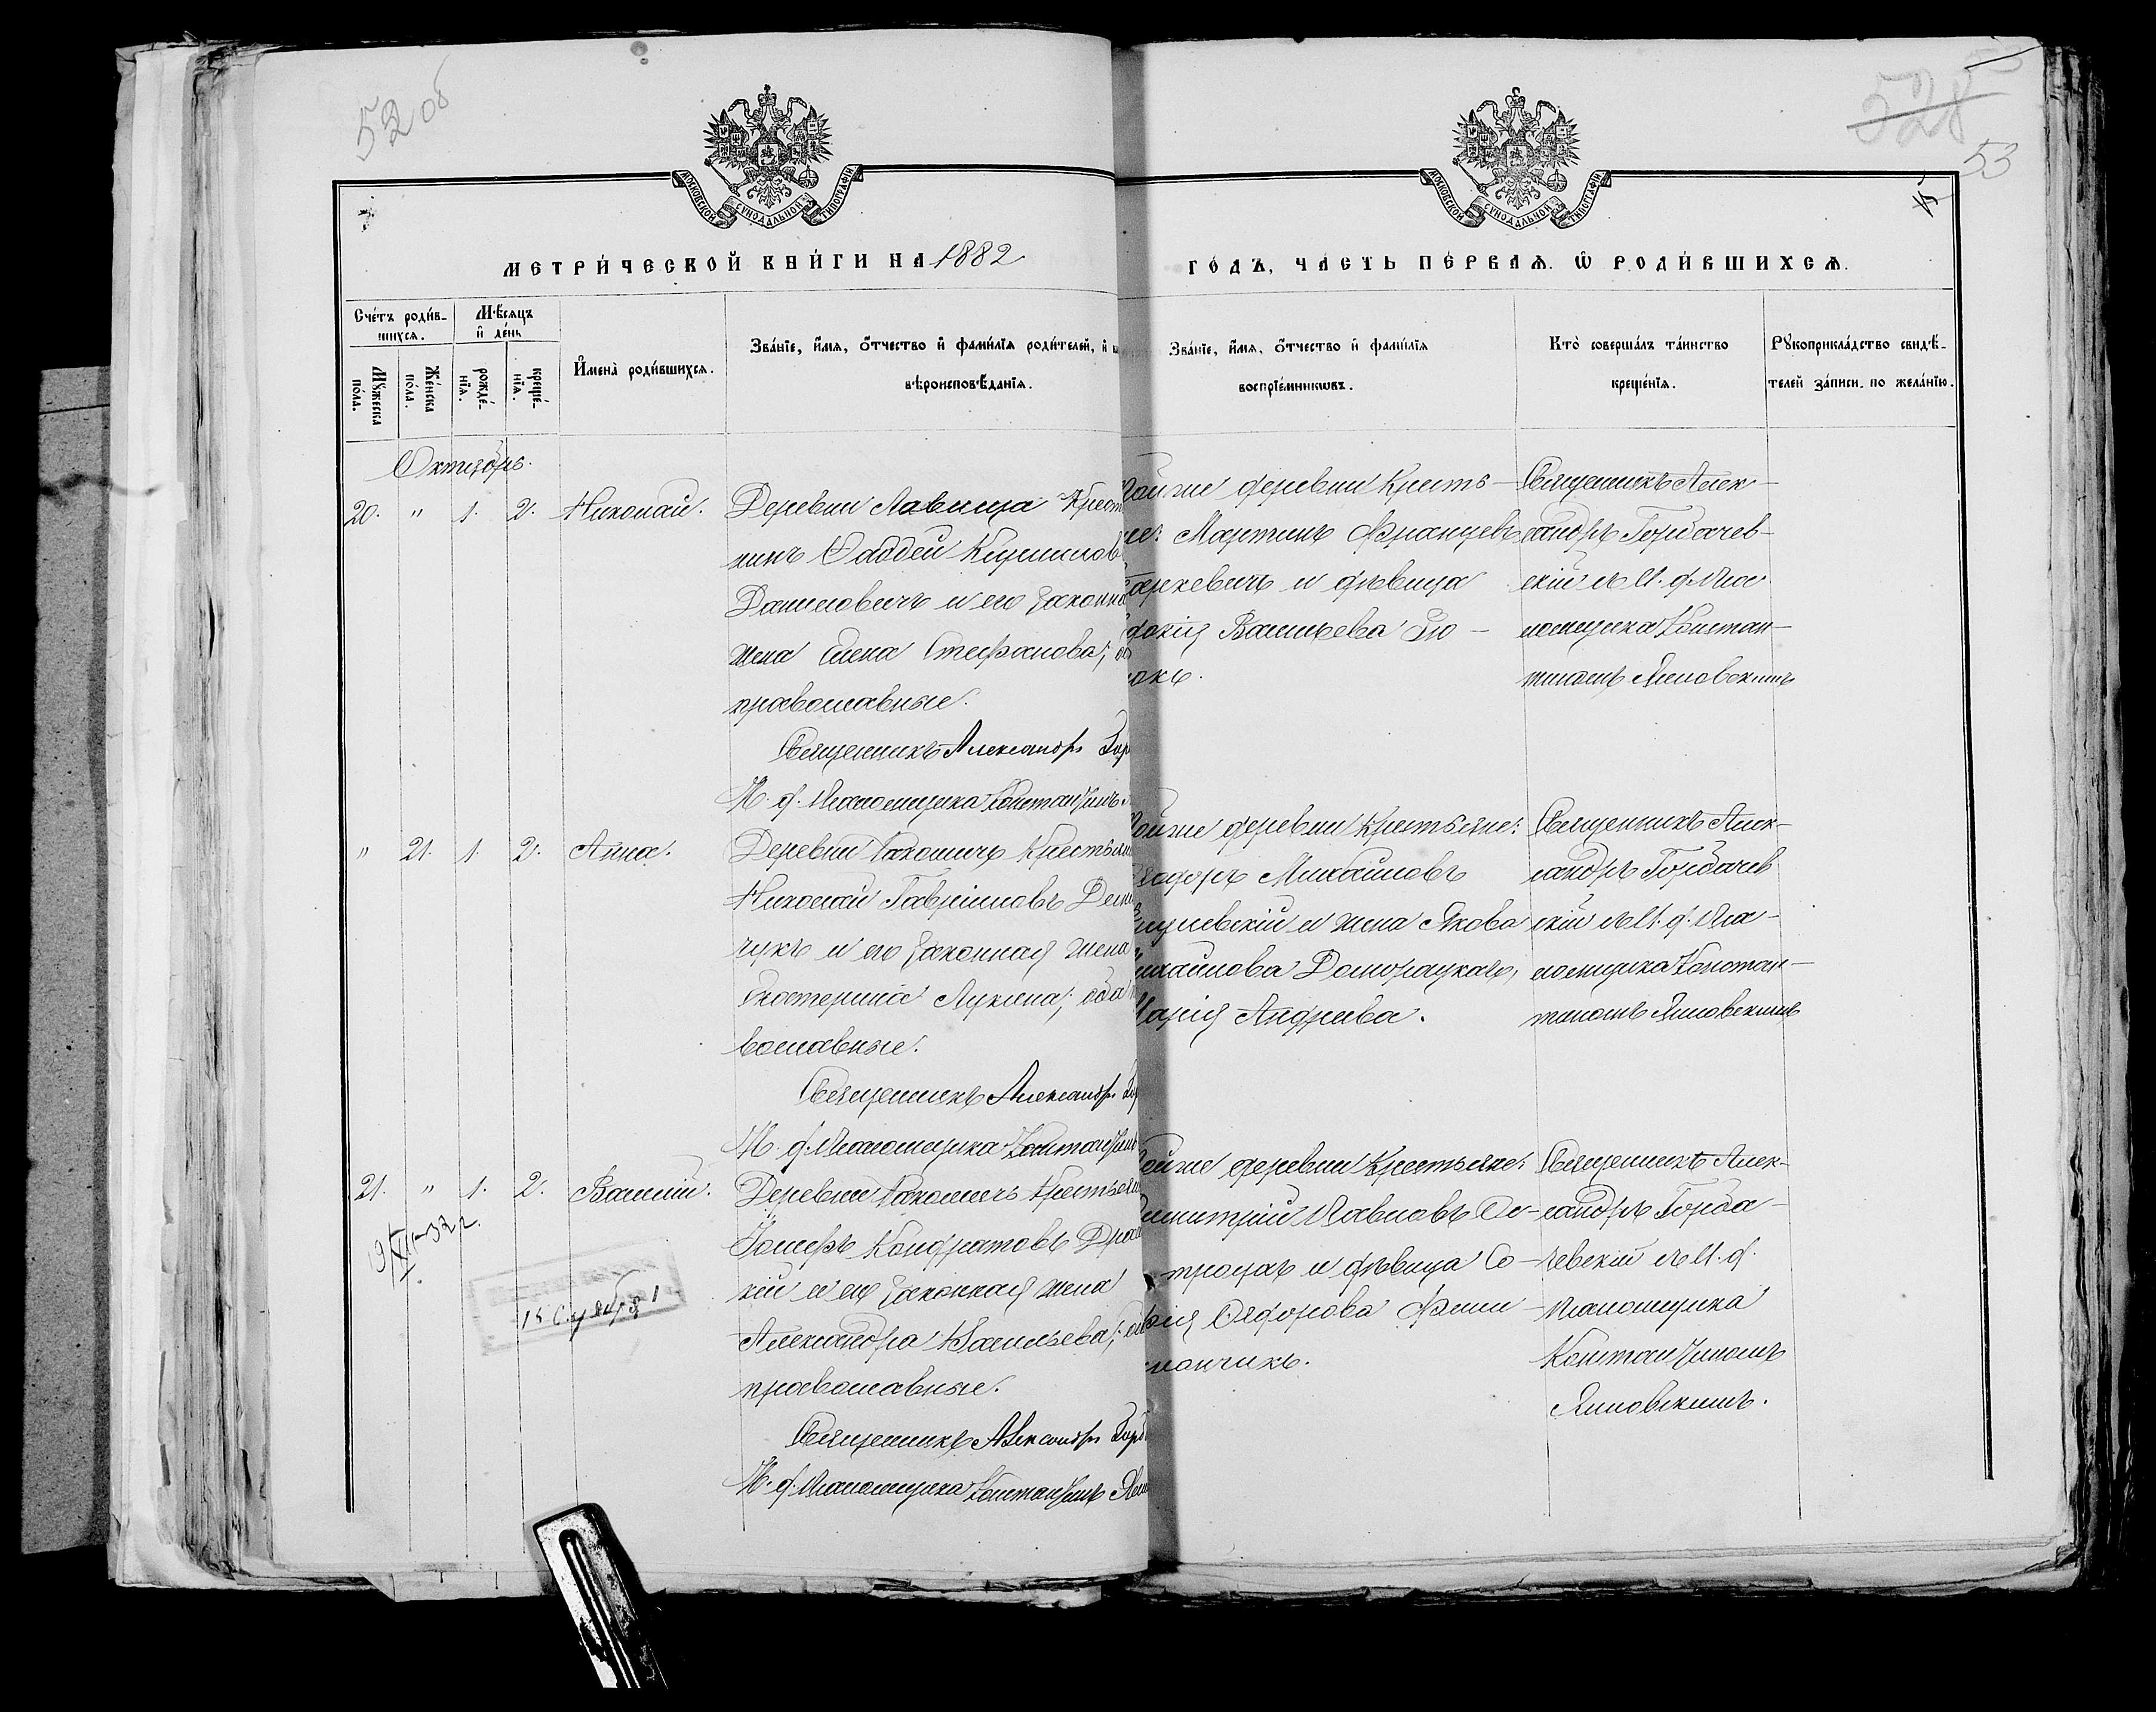 52 об
528
53
МОСКОВСКОЙ СѴНОДАЛЬНОЙ ТИПОГРАФІИ
МОСКОВСКОЙ СѴНОДАЛЬНОЙ ТИПОГРАФІИ
МЕТРИ́ЧЕСКОЙ КНИ́ГИ НА 1882
ГО́ДЪ, ЧА́СТЬ ПЕ́РВАЯ. Ѡ РОДИ́ВШИХСЯ.
Сче́тъ роди́в-
шихся.
Мѣ́сяцъ
и҆ де́нь
Мꙋ́жеска
по́ла.
Же́нска
по́ла.
рожде́-
нїѧ.
креще́-
нїѧ.
И҆мена̀ роди́вшихся.
Зва́нїе, и҆́мѧ, ѻ҆́тчество и҆ фами́лїѧ роди́телей, и҆
вѣроисповѣ́данїѧ.
Зва́нїе, и҆́мѧ, ѻ҆́тчество и҆ фами́лїѧ
воспрїе́мникѡвъ.
Кто̀ соверша́лъ та́инство
креще́нїѧ.
Рꙋкоприкла́дство свидѣ́-
телей за́писи, по жела́нїю.
Октябрь.
20. " 1. 2. Николай.
Деревни Лавица Крест
нинъ Фаддей Кирилов
Даниловичъ и его законна
жена Елена Стефанова;
православные.
Священникъ Александръ Гор
И. д. Псаломщика Константинъ
тойже деревни Кресть-
не: Мартинъ Францевъ
и дѣвица
Васильева
Священникъ Алек-
сандръ Горбачев-
скій съ И. д. Пса
ломщика Констан-
тиномъ Яновскимъ
" 21. 1. 2. Анна.
Деревни Крестьян
Николай Гавріиловъ Дем
чукъ и его законная жена
Екатерина Лукина; оба
вославные.
Священникъ Александръ Гор
И. д. Псаломщика Константинъ
тойже деревни Крестьяне:
Михайловъ
и жена Якова
Михайлова
Марія Андреева.
Священникъ Алек-
сандръ Горбачев
скій съ И. д. Пса-
ломщика Констан-
тиномъ Яновскимъ
21. " 1. 2. Василій.
Деревни Крестьян
Іосифъ Кондратовъ
кій и его законная жена
Александра Васильева;
православные.
Священникъ Александръ Горб
И. д. Псаломщика Константинъ Яно
тойже деревни Крестьяне:
Димитрій Павловъ Ос-
и дѣвица Со-
фія Ѳедорова
Священникъ Алек-
сандръ Горба-
чевскій съ И. д.
Псаломщика
Константиномъ
Яновскимъ.